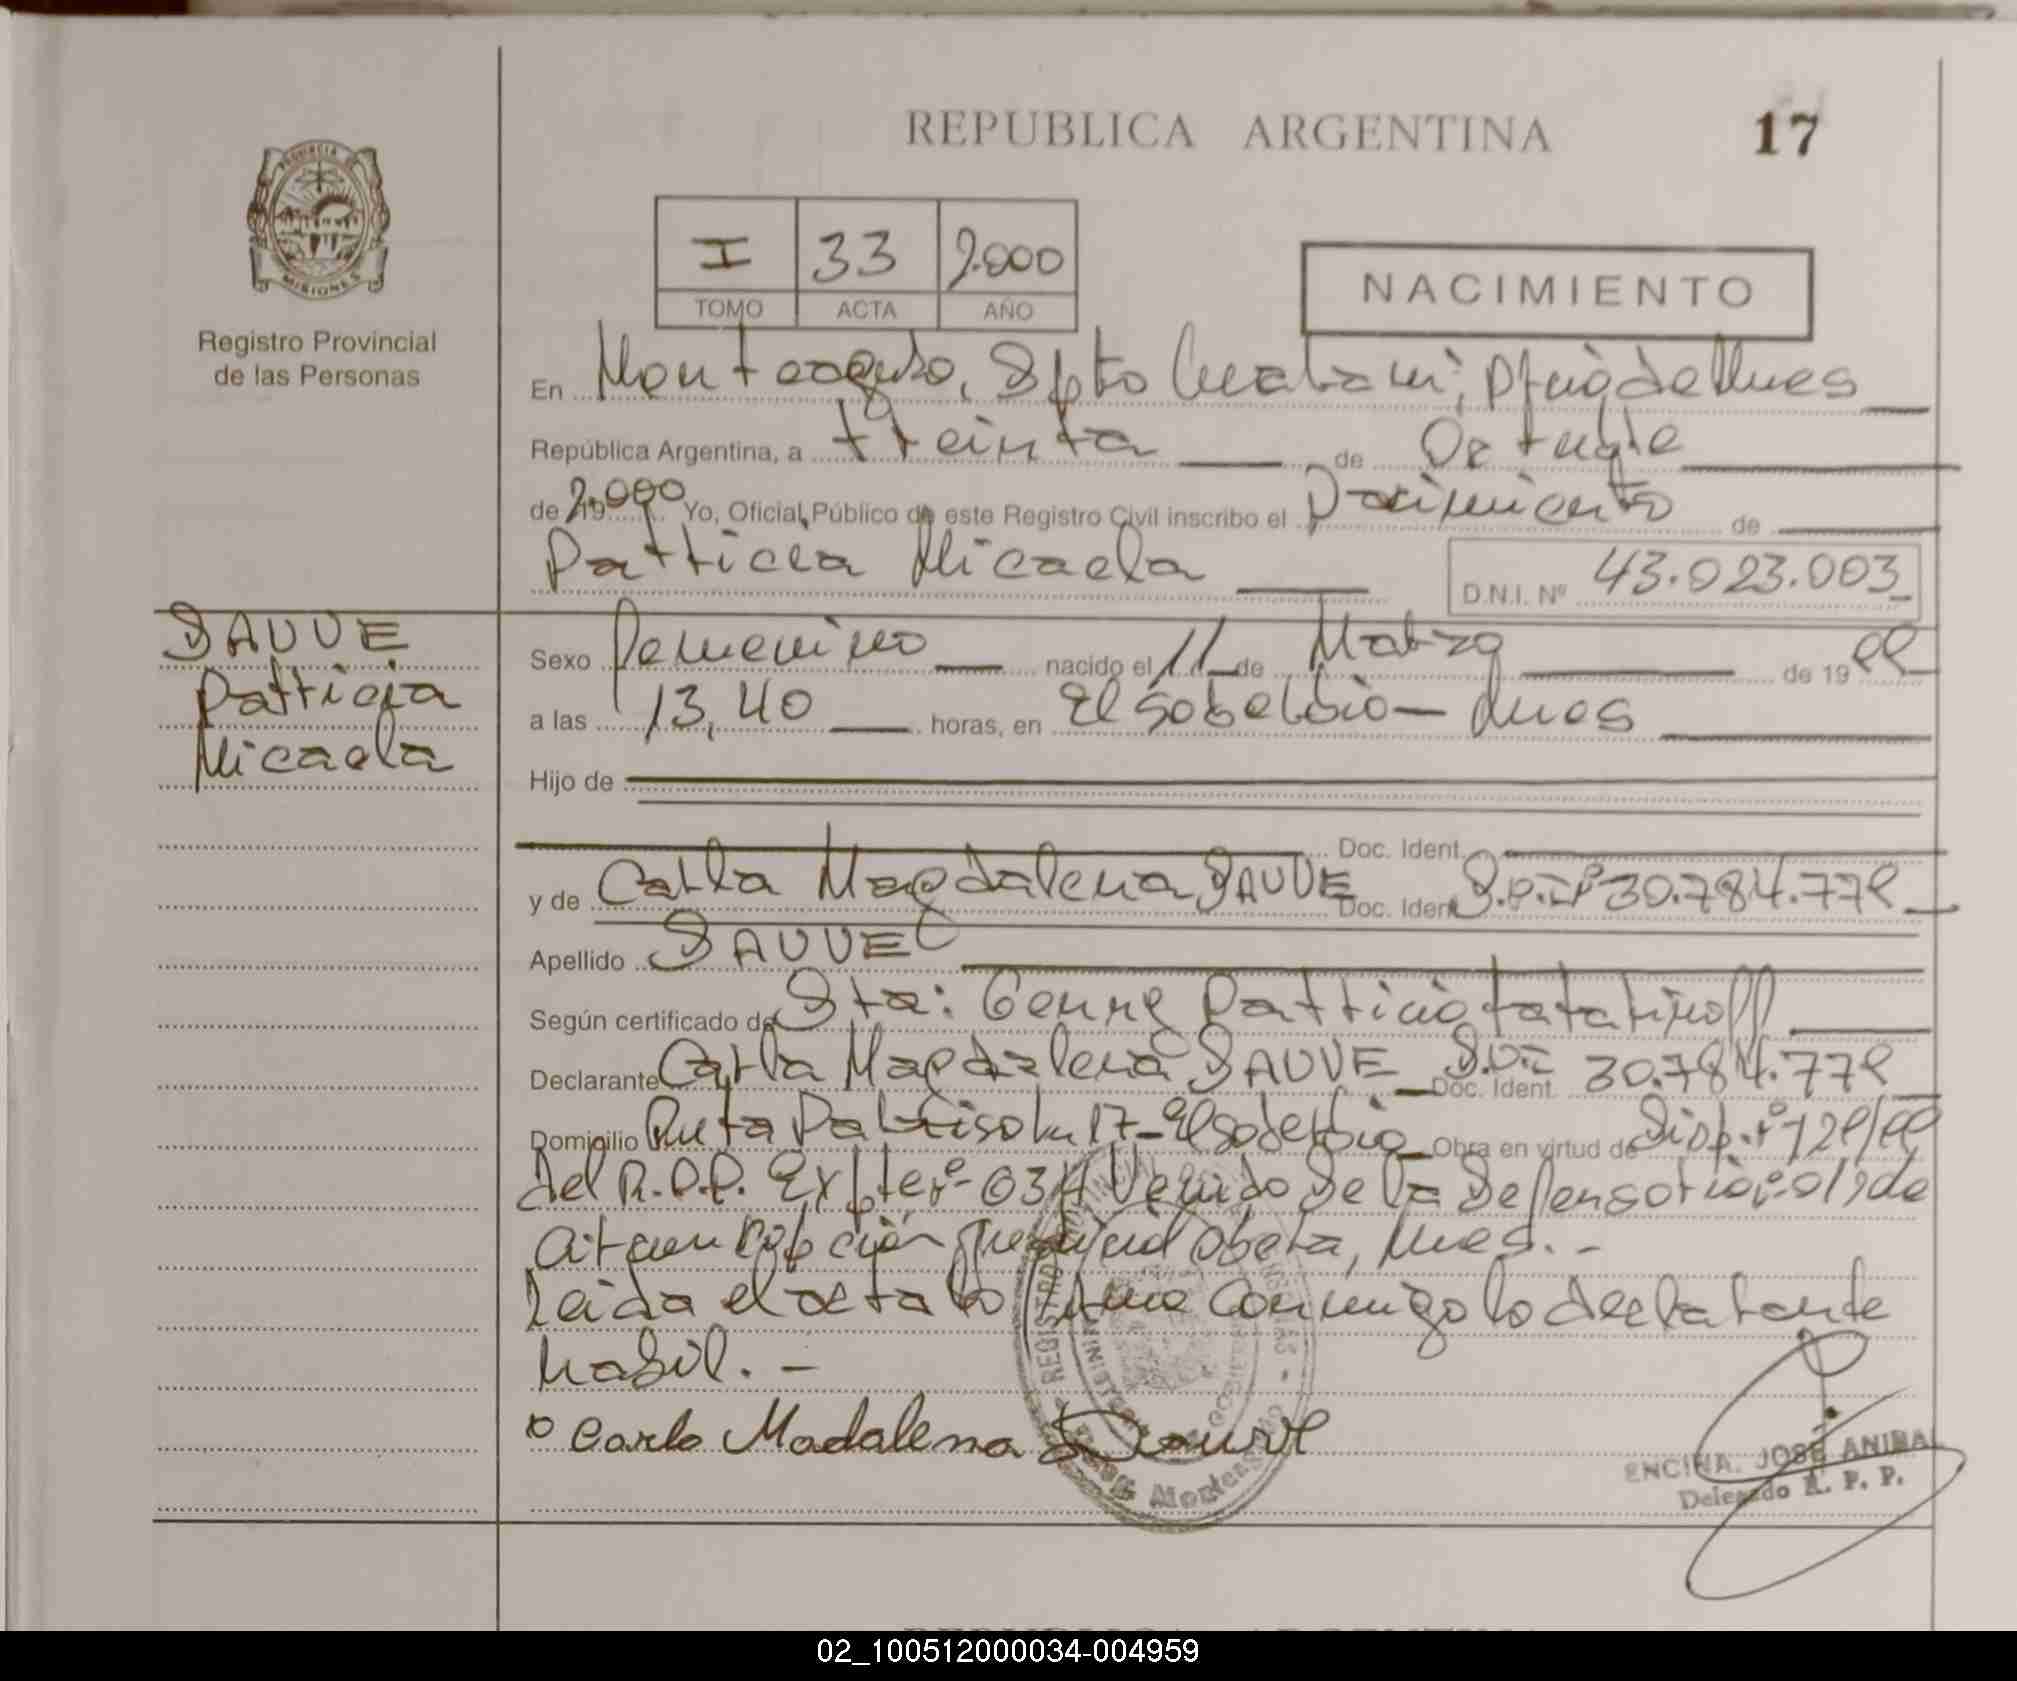 REPUBLICA ARGENTINA
17
PROVINCIA DE
MISIONES
Registro Provincial
de las Personas
I 33 2.000
TOMO ACTA AÑO
NACIMIENTO
En Dpto
República Argentina, a treinta de Octubre
de 19 2.000 Yo, Oficial Público de este Registro Civil inscribo el Nacimiento de
Patricia Micaela
D.N.I. Nº 43.023.003
SAUVE
Patricia
Micaela
Sexo Femenino nacido el 11 de Marzo de 19 99
a las 13,40 horas, en El Soberbio - Mnes
Hijo de
Doc. Ident.
y de Carla Magdalena SAUVE Doc. Ident. 30.784.779
Apellido SAUVE
Según certificado de Sta: Patricio
Declarante Carla Magdalena SAUVE Doc. Ident. D.N.I. 30.784.779
Domicilio Ruta km 17 - El Soberbio Obra en virtud de Disp. nº
del R.P.P. Expte nº 034 Venido de la Defensoria
Obera, Mnes. -
Leida el acta la firma conmigo la declarante
habil. -
Carla Madalena Sauve
ENCINA, JOSE ANIBAL
Delegado R. P. P.
02_100512000034-004959